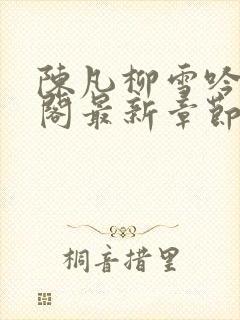 陳凡柳雪吟
閣最新章節
桐音措里